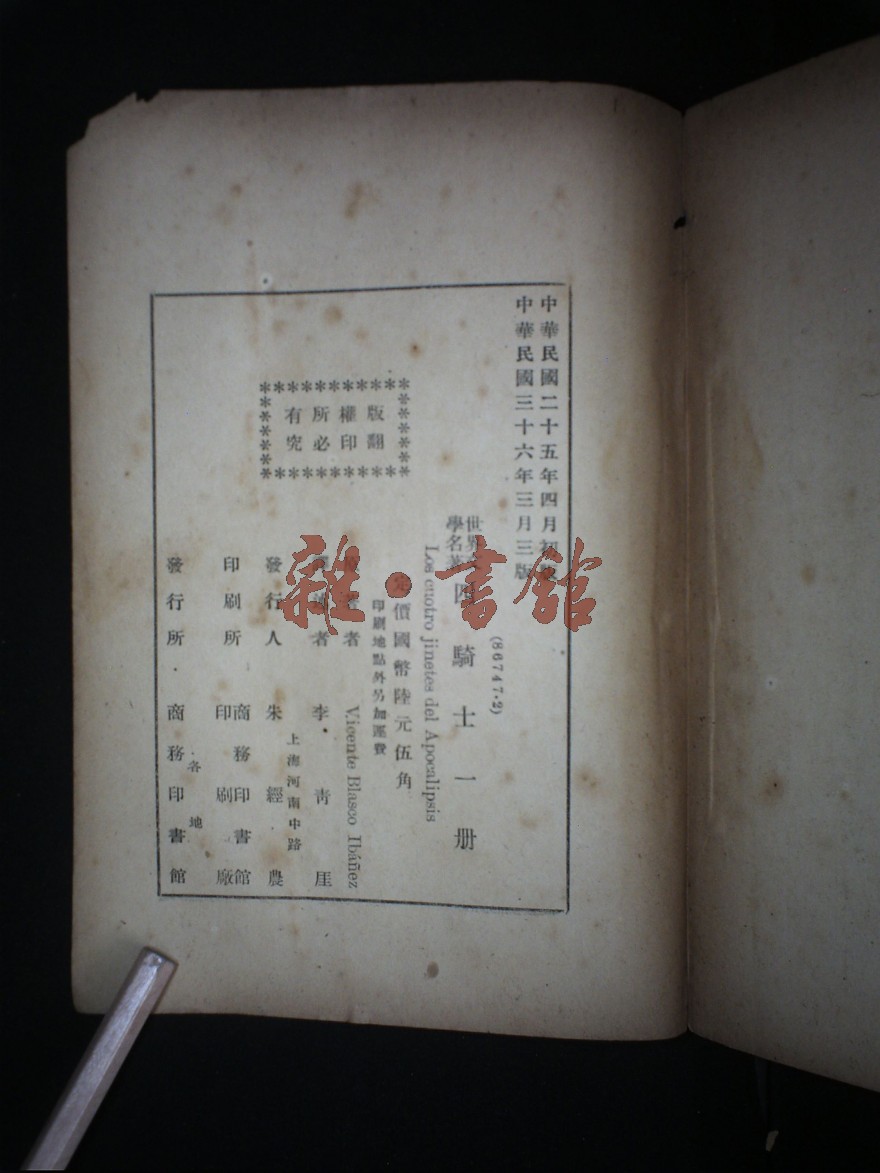 中華民國二十五年四月初版
中華民國三十六年三月三版
(86747·2)
世界文
學名著
四騎士一册
Los cuotro jinetes del Apocalipsis
定價國幣陸元伍角
印刷地點外另加運費
版權所有
翻印必究
著者 Vicente Blasco Ibáñez
譯述者 李青崖
上海河南中路
發行人 朱經農
印刷所 商務印書館
印刷廠
各地
發行所 商務印書館
雜·書館